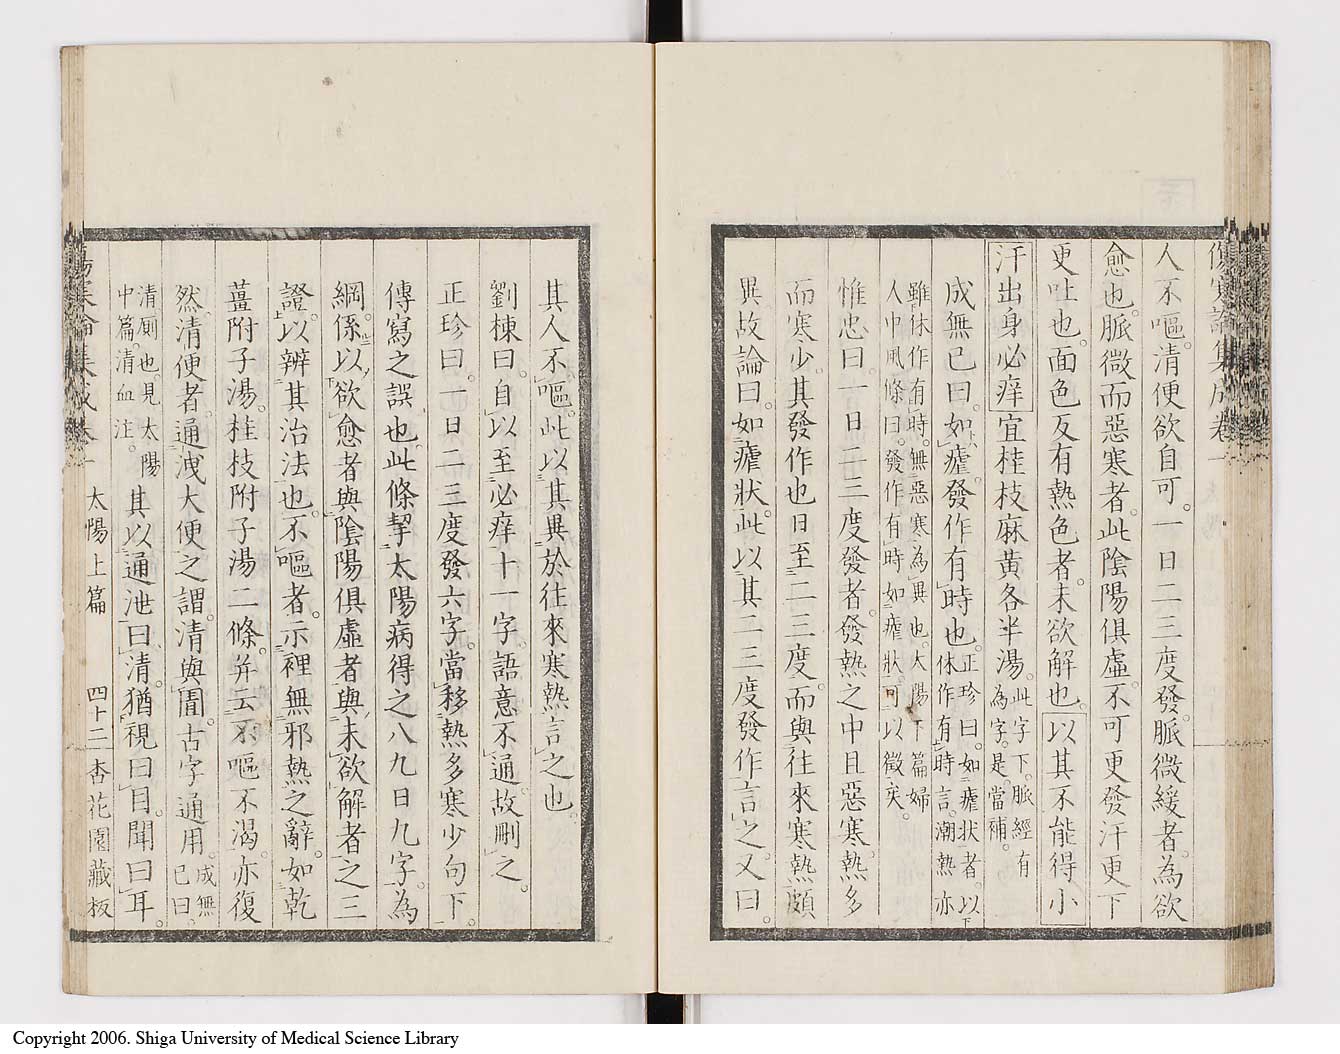 傷寒論集成卷一
人不嘔。清便欲自可。一日二三度發。脈微緩者。為欲
愈也。脈微而惡寒者。此陰陽俱虛。不可更發汗更下
更吐也。面色反有熱色者。未欲解也。以其不能得小
汗出身必痒宜桂枝麻黃各半湯。此字下。脈經有為字。是。當補。
成無己曰。如瘧發作有時也。正珍曰。如瘧狀者。以休作有時言。潮熱亦
雖休作有時。無惡寒為異也。太陽下篇婦人中風條曰。發作有時如瘧狀。可以徵矣。
惟忠曰。一日二三度發者。發熱之中且惡寒。熱多
而寒少。其發作也日至二三度。而與往來寒熱頗
異故論曰。如瘧狀。此以其二三度發作言之又曰。
其人不嘔。此以其異於往來寒熱言之也。
劉棟曰。自以至必痒十一字。語意不通故刪之。
正珍曰。一日二三度發六字。當移熱多寒少句下。
傳寫之誤也。此條挈太陽病得之八九日九字。為
綱。係以欲愈者與陰陽俱虛者與未欲解者之三
證。以辨其治法也。不嘔者。示裡無邪熱之辭。如乾
薑附子湯。桂枝附子湯二條。并云不嘔不渴亦復
然。清便者。通洩大便之謂。清與圊。古字通用。成無己曰。
清厠也。見太陽中篇。清血注。其以通泄曰清。猶視曰目。聞曰耳。
傷寒論集成卷一 太陽上篇 四十三 杏花園藏板
Copyright 2006. Shiga University of Medical Science Library